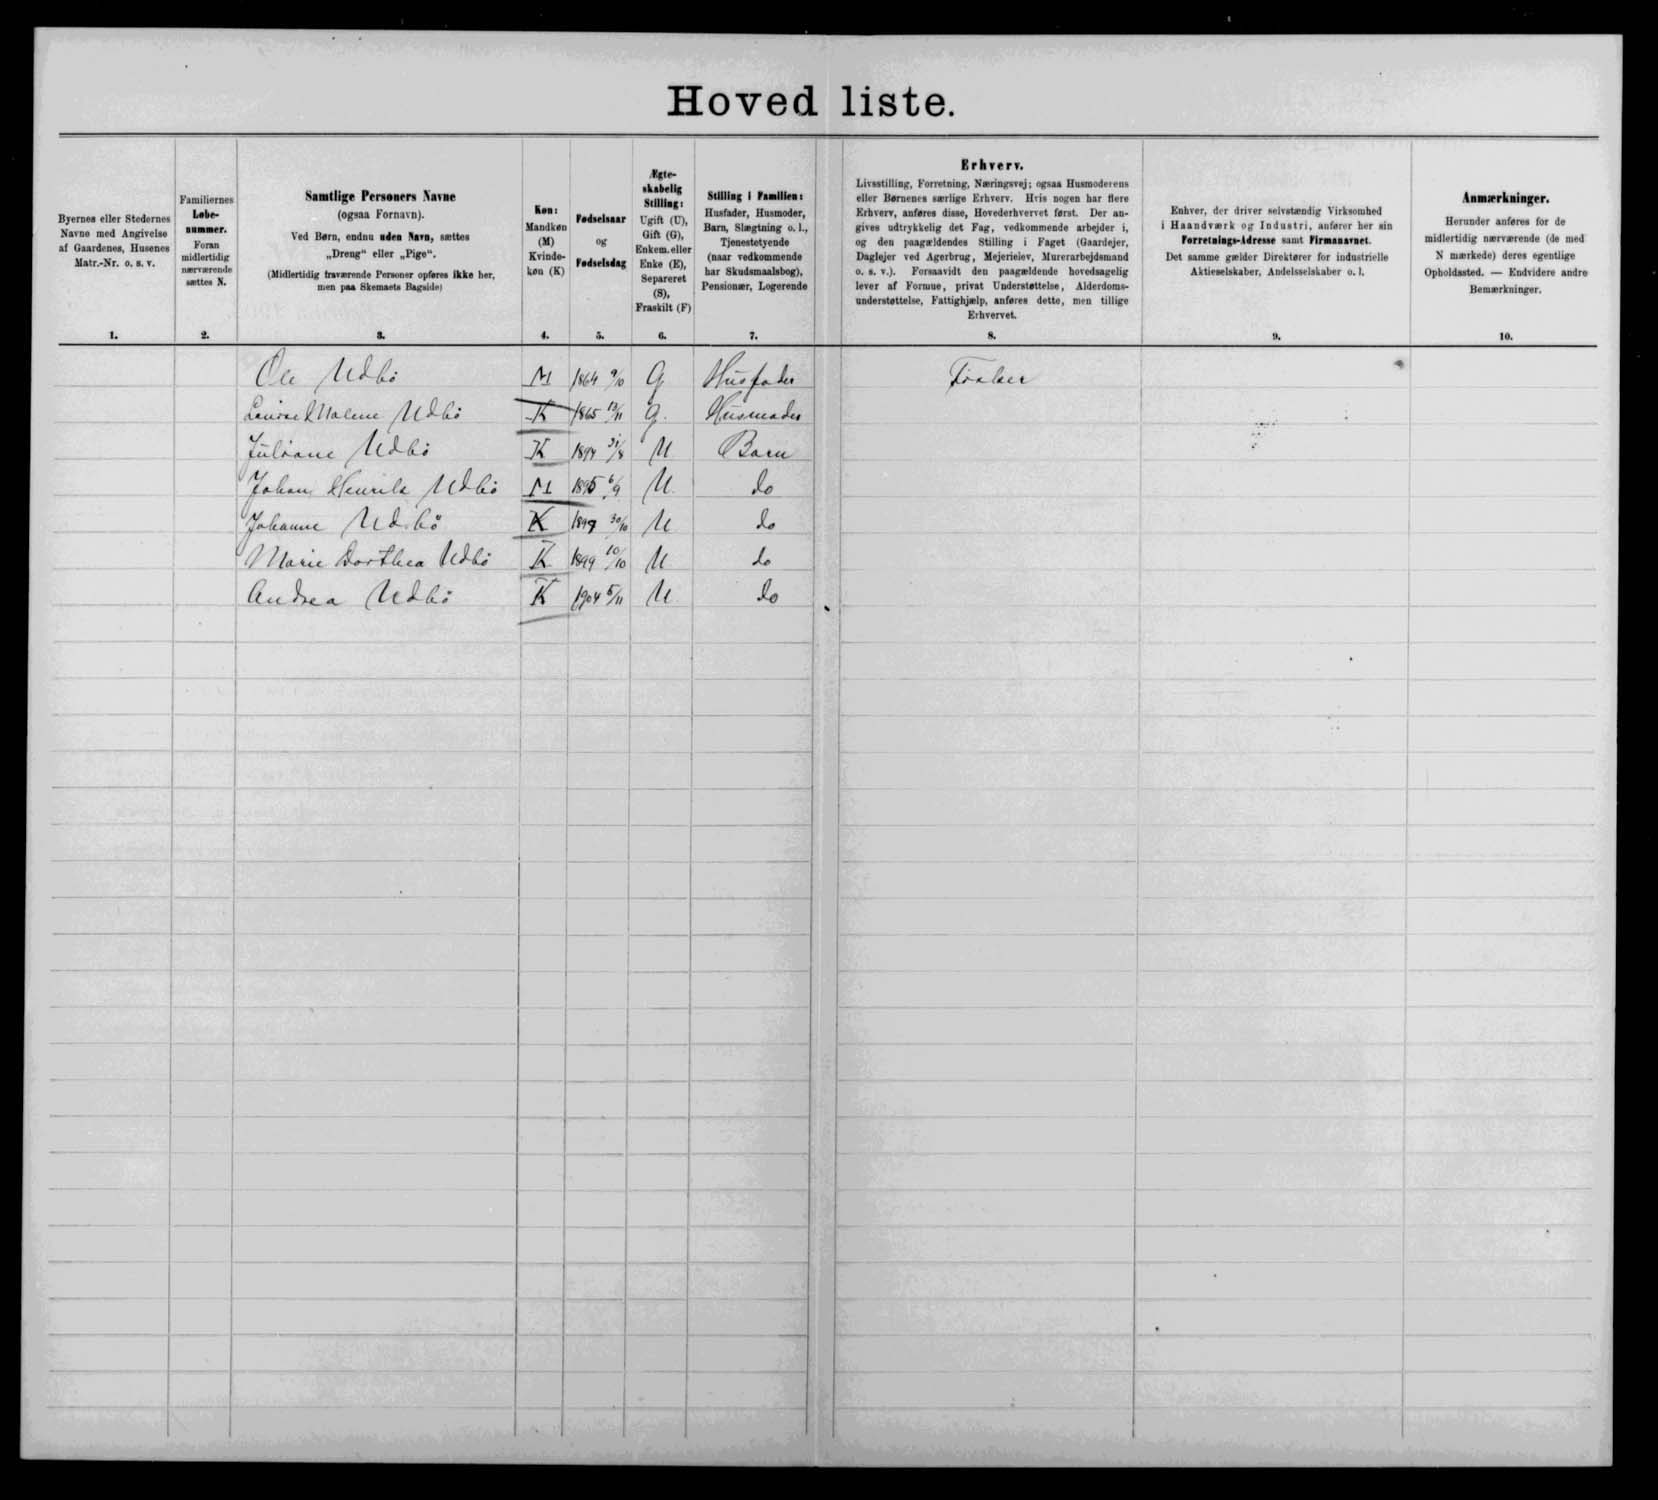 Hovedliste.
Byernes eller Stedernes
Navne med Angivelse
af Gaardenes, Husenes
Matr.-Nr. o. s. v.
1.
Familiernes
Løbe-
nummer.
Foran
midlertidig
nærværende
sættes N.
2.
Samtlige Personers Navne
(ogsaa Fornavn).
Ved Børn, endnu uden Navn, sættes
„Dreng“ eller „Pige“.
(Midlertidig fraværende Personer opføres ikke her,
men paa Skemaets Bagside)
3.
Køn:
Mandkøn
(M)
Kvinde-
køn (K)
4.
Fødselsaar
og
Fødselsdag
5.
Ægte-
skabelig
Stilling:
Ugift (U),
Gift (G),
Enkem. eller
Enke (E),
Separeret
(S),
Fraskilt (F)
6.
Stilling i Familien:
Husfader, Husmoder,
Barn, Slægtning o. l.,
Tjenestetyende
(naar vedkommende
har Skudsmaalsbog),
Pensionær, Logerende
7.
Erhverv.
Livsstilling, Forretning, Næringsvej; ogsaa Husmoderens
eller Børnenes særlige Erhverv. Hvis nogen har flere
Erhverv, anføres disse, Hovederhvervet først. Der an-
gives udtrykkelig det Fag, vedkommende arbejder i,
og den paagældendes Stilling i Faget (Gaardejer,
Daglejer ved Agerbrug, Mejerielev, Murerarbejdsmand
o. s. v.). Forsaavidt den paagældende hovedsagelig
lever af Formue, privat Understøttelse, Alderdoms-
understøttelse, Fattighjælp, anføres dette, men tillige
Erhvervet.
8.
Enhver, der driver selvstændig Virksomhed
i Haandværk og Industri, anfører her sin
Forretnings-Adresse samt Firmanavnet.
Det samme gælder Direktører for industrielle
Aktieselskaber, Andelsselskaber o. l.
9.
Anmærkninger.
Herunder anføres for de
midlertidig nærværende (de med
N mærkede) deres egentlige
Opholdssted. — Endvidere andre
Bemærkninger.
10.
Ole Udbö M 1864 9/10 G Husfader Fisker
Malene Udbö K 1865 13/11 G. Husmoder
Juliane Udbö K 1894 31/8 U Barn
Johan Henrik Udbö M 1895 6/9 U. do
Johanne Udbö K 1897 30/10 U do
Marie Dorthea Udbö K 1899 10/10 U do
Andrea Udbö K 1904 5/11 U do